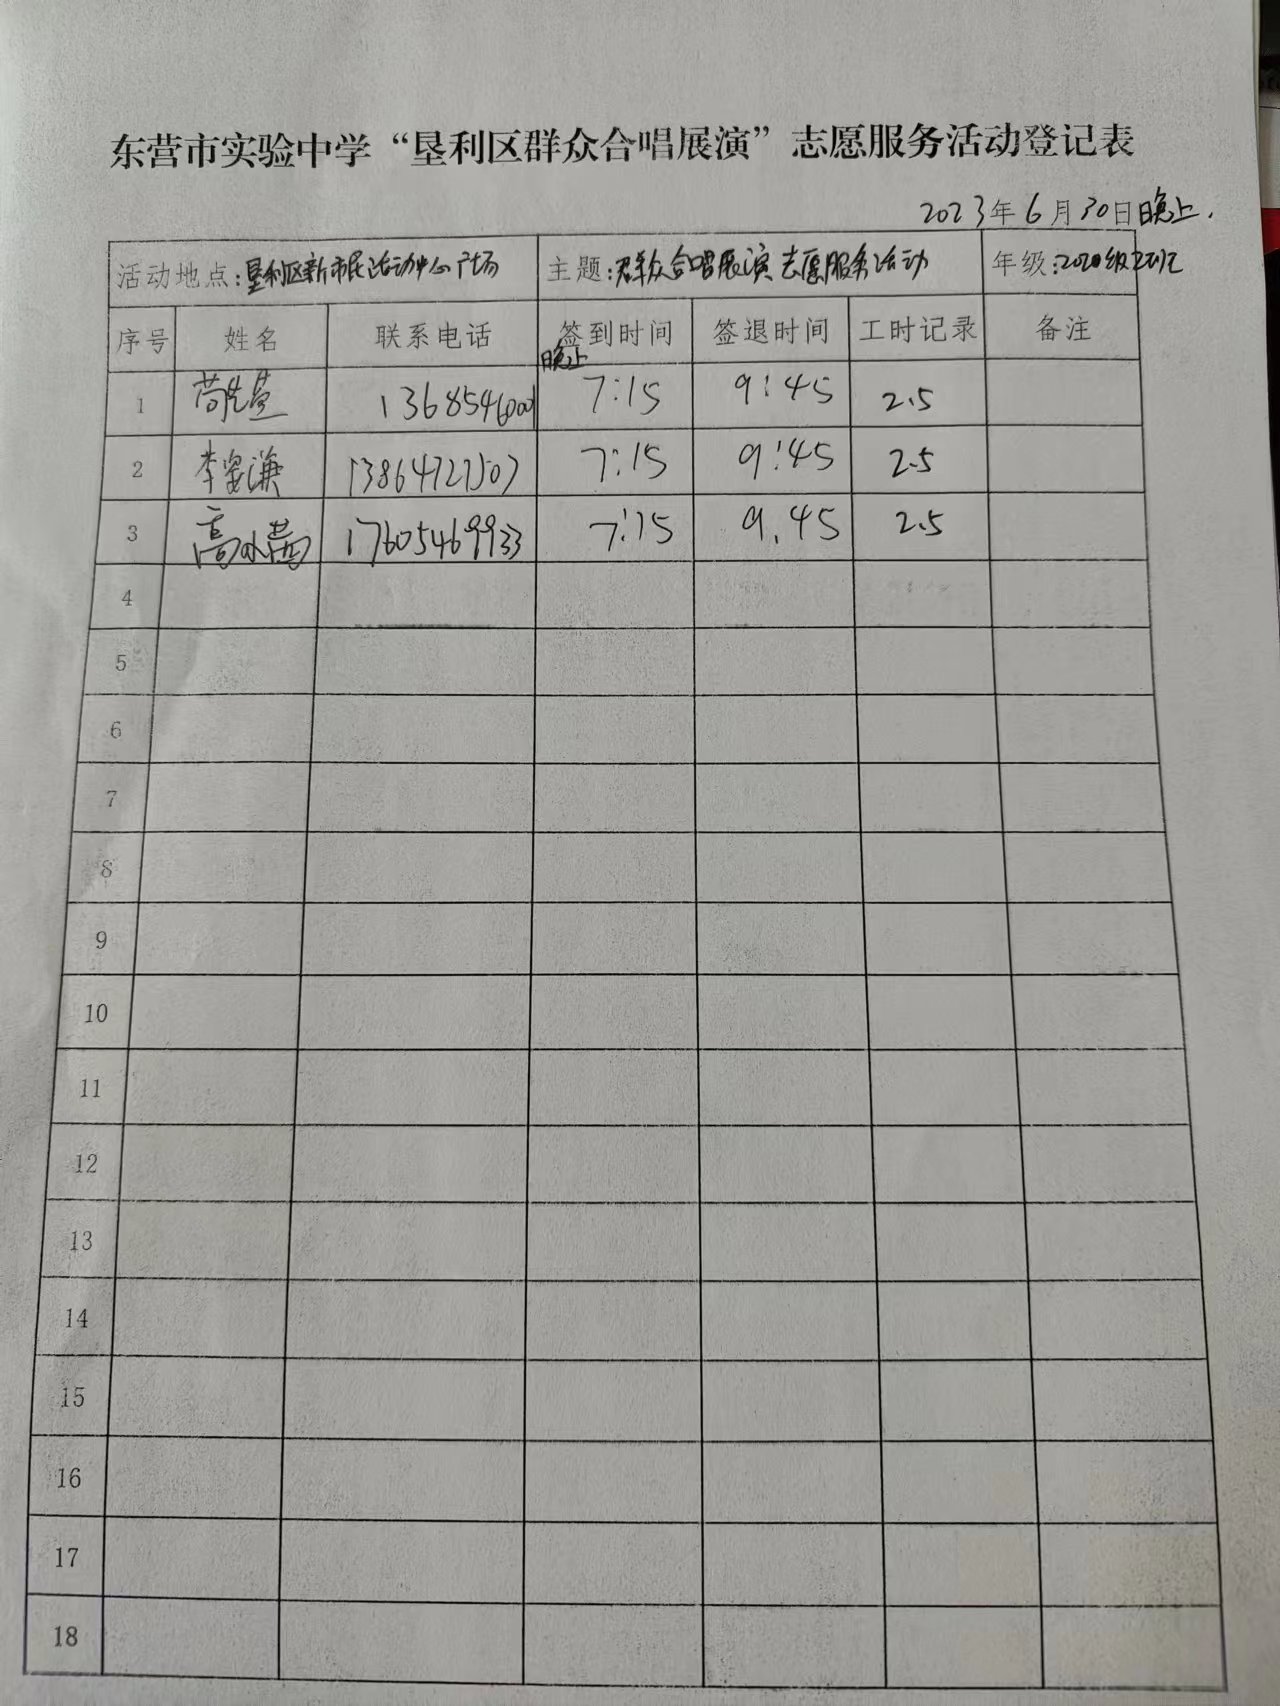 东营市实验中学“垦利区群众合唱展演”志愿服务活动登记表
2023年6月30日晚上.
活动地点:垦利区新市民活动中心广场 主题:群众合唱展演志愿服务活动 年级:2020级
序号 姓名 联系电话 签到时间 签退时间 工时记录 备注
晚上
1 7:15 9:45 2.5
2 李 7:15 9:45 2.5
3 高 17605469933 7:15 9.45 2.5
4
5
6
7
8
9
10
11
12
13
14
15
16
17
18